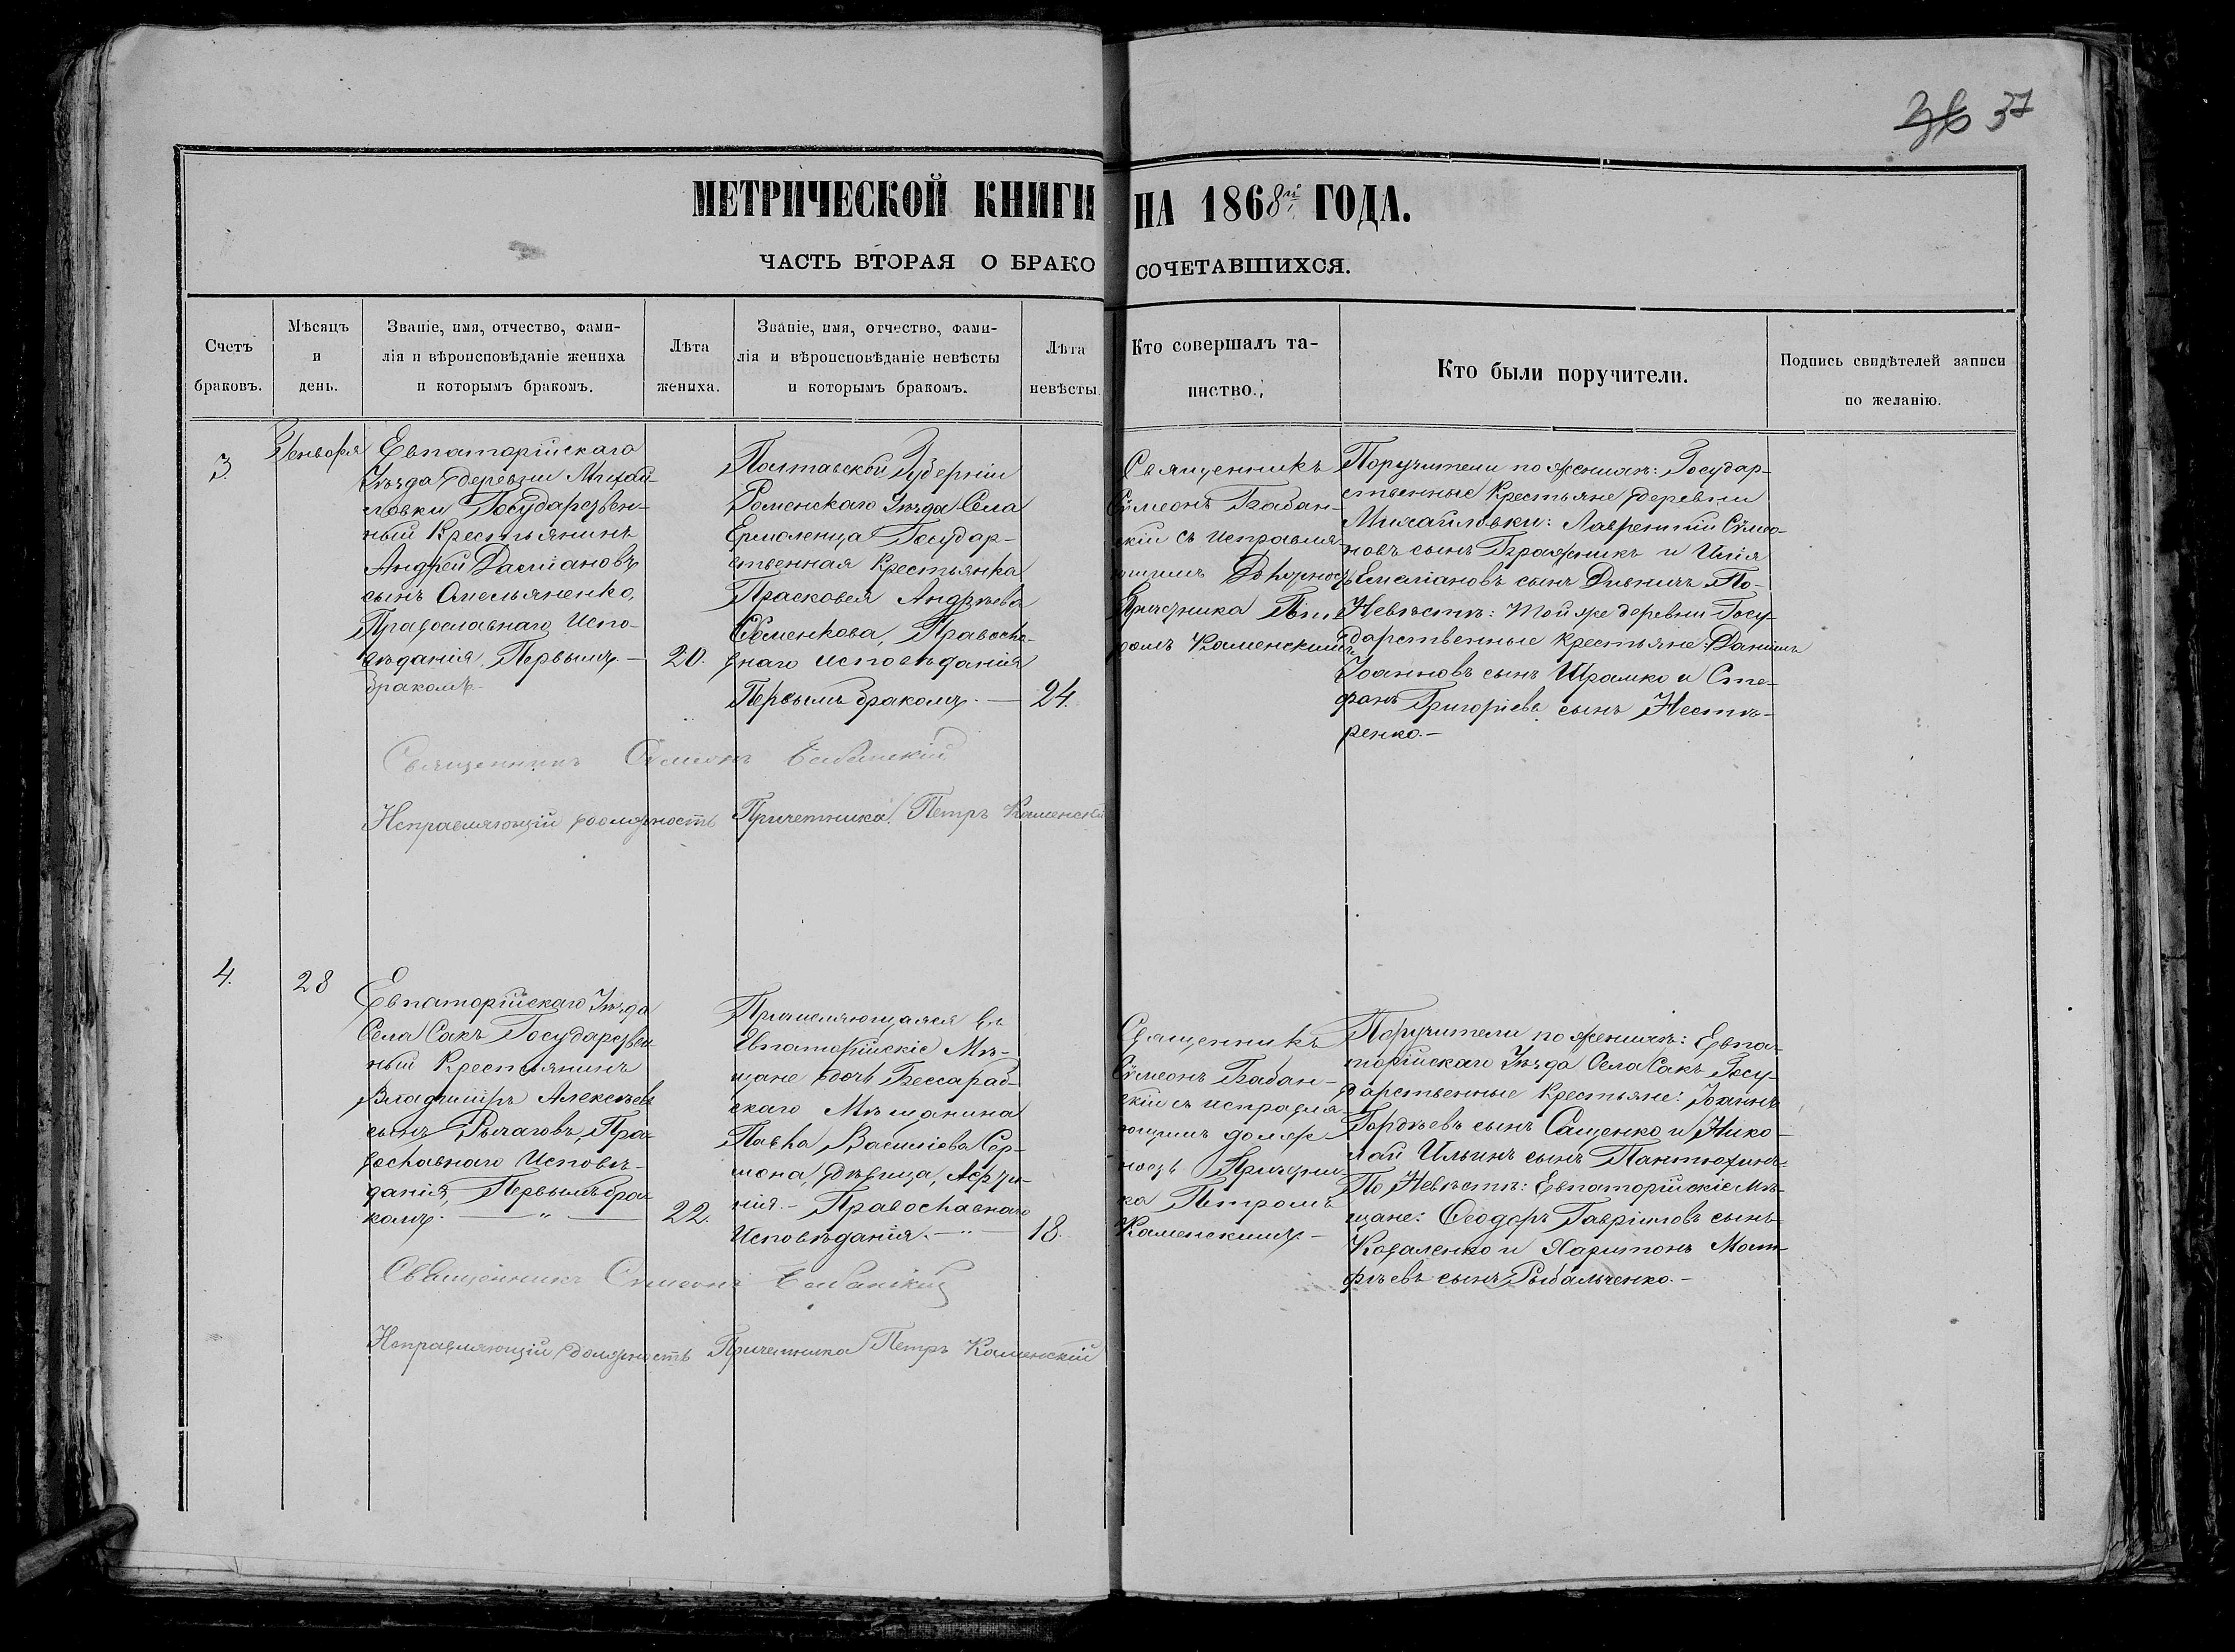 36 37
МЕТРИЧЕСКОЙ КНИГИ НА 1868й ГОДА.
ЧАСТЬ ВТОРАЯ О БРАКОСОЧЕТАВШИХСЯ.
Счетъ
браковъ.
Мѣсяцъ
и
день.
Званіе, имя, отчество, фами-
лія и вѣроисповѣданіе жениха
и которымъ бракомъ.
Лѣта
жениха.
Званіе, имя, отчество, фами-
лія и вѣроисповѣданіе невѣсты
и которымъ бракомъ.
Лѣта
невѣсты
Кто совершалъ та-
инство.
Кто были поручители.
Подпись свидѣтелей записи
по желанію.
3.
Генворя
Евпаторійскаго
Уѣзда деревни Михай-
ловки Государствен-
ный Крестьянинъ
Андрей Даміановъ
сынъ Омельяненко,
Православнаго Испо-
вѣданія, Первымъ —
бракомъ.-
20.
Полтавской Губерніи
Роменскаго Уѣзда Села
Государ-
ственная Крестьянка
Прасковея Андрѣева
Правосла-
внаго исповѣданія
Первымъ бракомъ. —
24.
Священникъ
Сѵмеонъ Бабан-
скій съ исправля-
ющимъ Должность
Причетника Пет-
ромъ Каменскимъ
Поручители по женихѣ: Государ-
ственные Крестьяне деревни
Михайловки: Лаврентій Сѵмео-
новъ сынъ Бражникъ и Илія
Емеліановъ сынъ По-
Невѣстѣ: Той же деревни Госу-
дарственные крестьяне: Даніилъ
Іоанновъ сынъ Шрамко и Сте-
фанъ Григоріевъ сынъ Нестѣ-
ренко.-
Священникъ Сѵмеонъ Бабанскій
Исправляющій должность Причетника Петръ Каменскій
4.
28
Евпаторійскаго Уѣзда
Села Сакъ Государствен-
ный Крестьянинъ
Владиміръ Алексѣевъ
сынъ Рычаговъ, Пра-
вославнаго Исповѣ-
данія, Первымъ бра-
комъ. — " —
22.
Причисляющаяся въ
Евпаторійскіе Мѣ-
щане дочь Бессараб-
скаго Мѣщанина
Павла Василіева Сер-
дѣвица,
нія.- Православнаго
Исповѣданія. — " —
18.
Священникъ
Сѵмеонъ Бабан-
скій съ исправля-
ющимъ долж-
ность Причетни-
ка Петромъ
Каменскимъ. -
Поручители по женихѣ: Евпа-
торійскаго Уѣзда Села Сакъ Госу-
дарственные Крестьяне: Іоаннъ
Гордѣевъ сынъ Сащенко и Нико-
лай Ильинъ сынъ Пантюхинъ.
По Невѣстѣ: Евпаторійскіе Мѣ-
щане: Ѳеодоръ Гавріиловъ сынъ
Коваленко и Харитонъ Мат-
фѣевъ сынъ Рыбальченко.-
Священникъ Сѵмеонъ Бабанскій
Исправляющій должность Причетника Петръ Каменскій